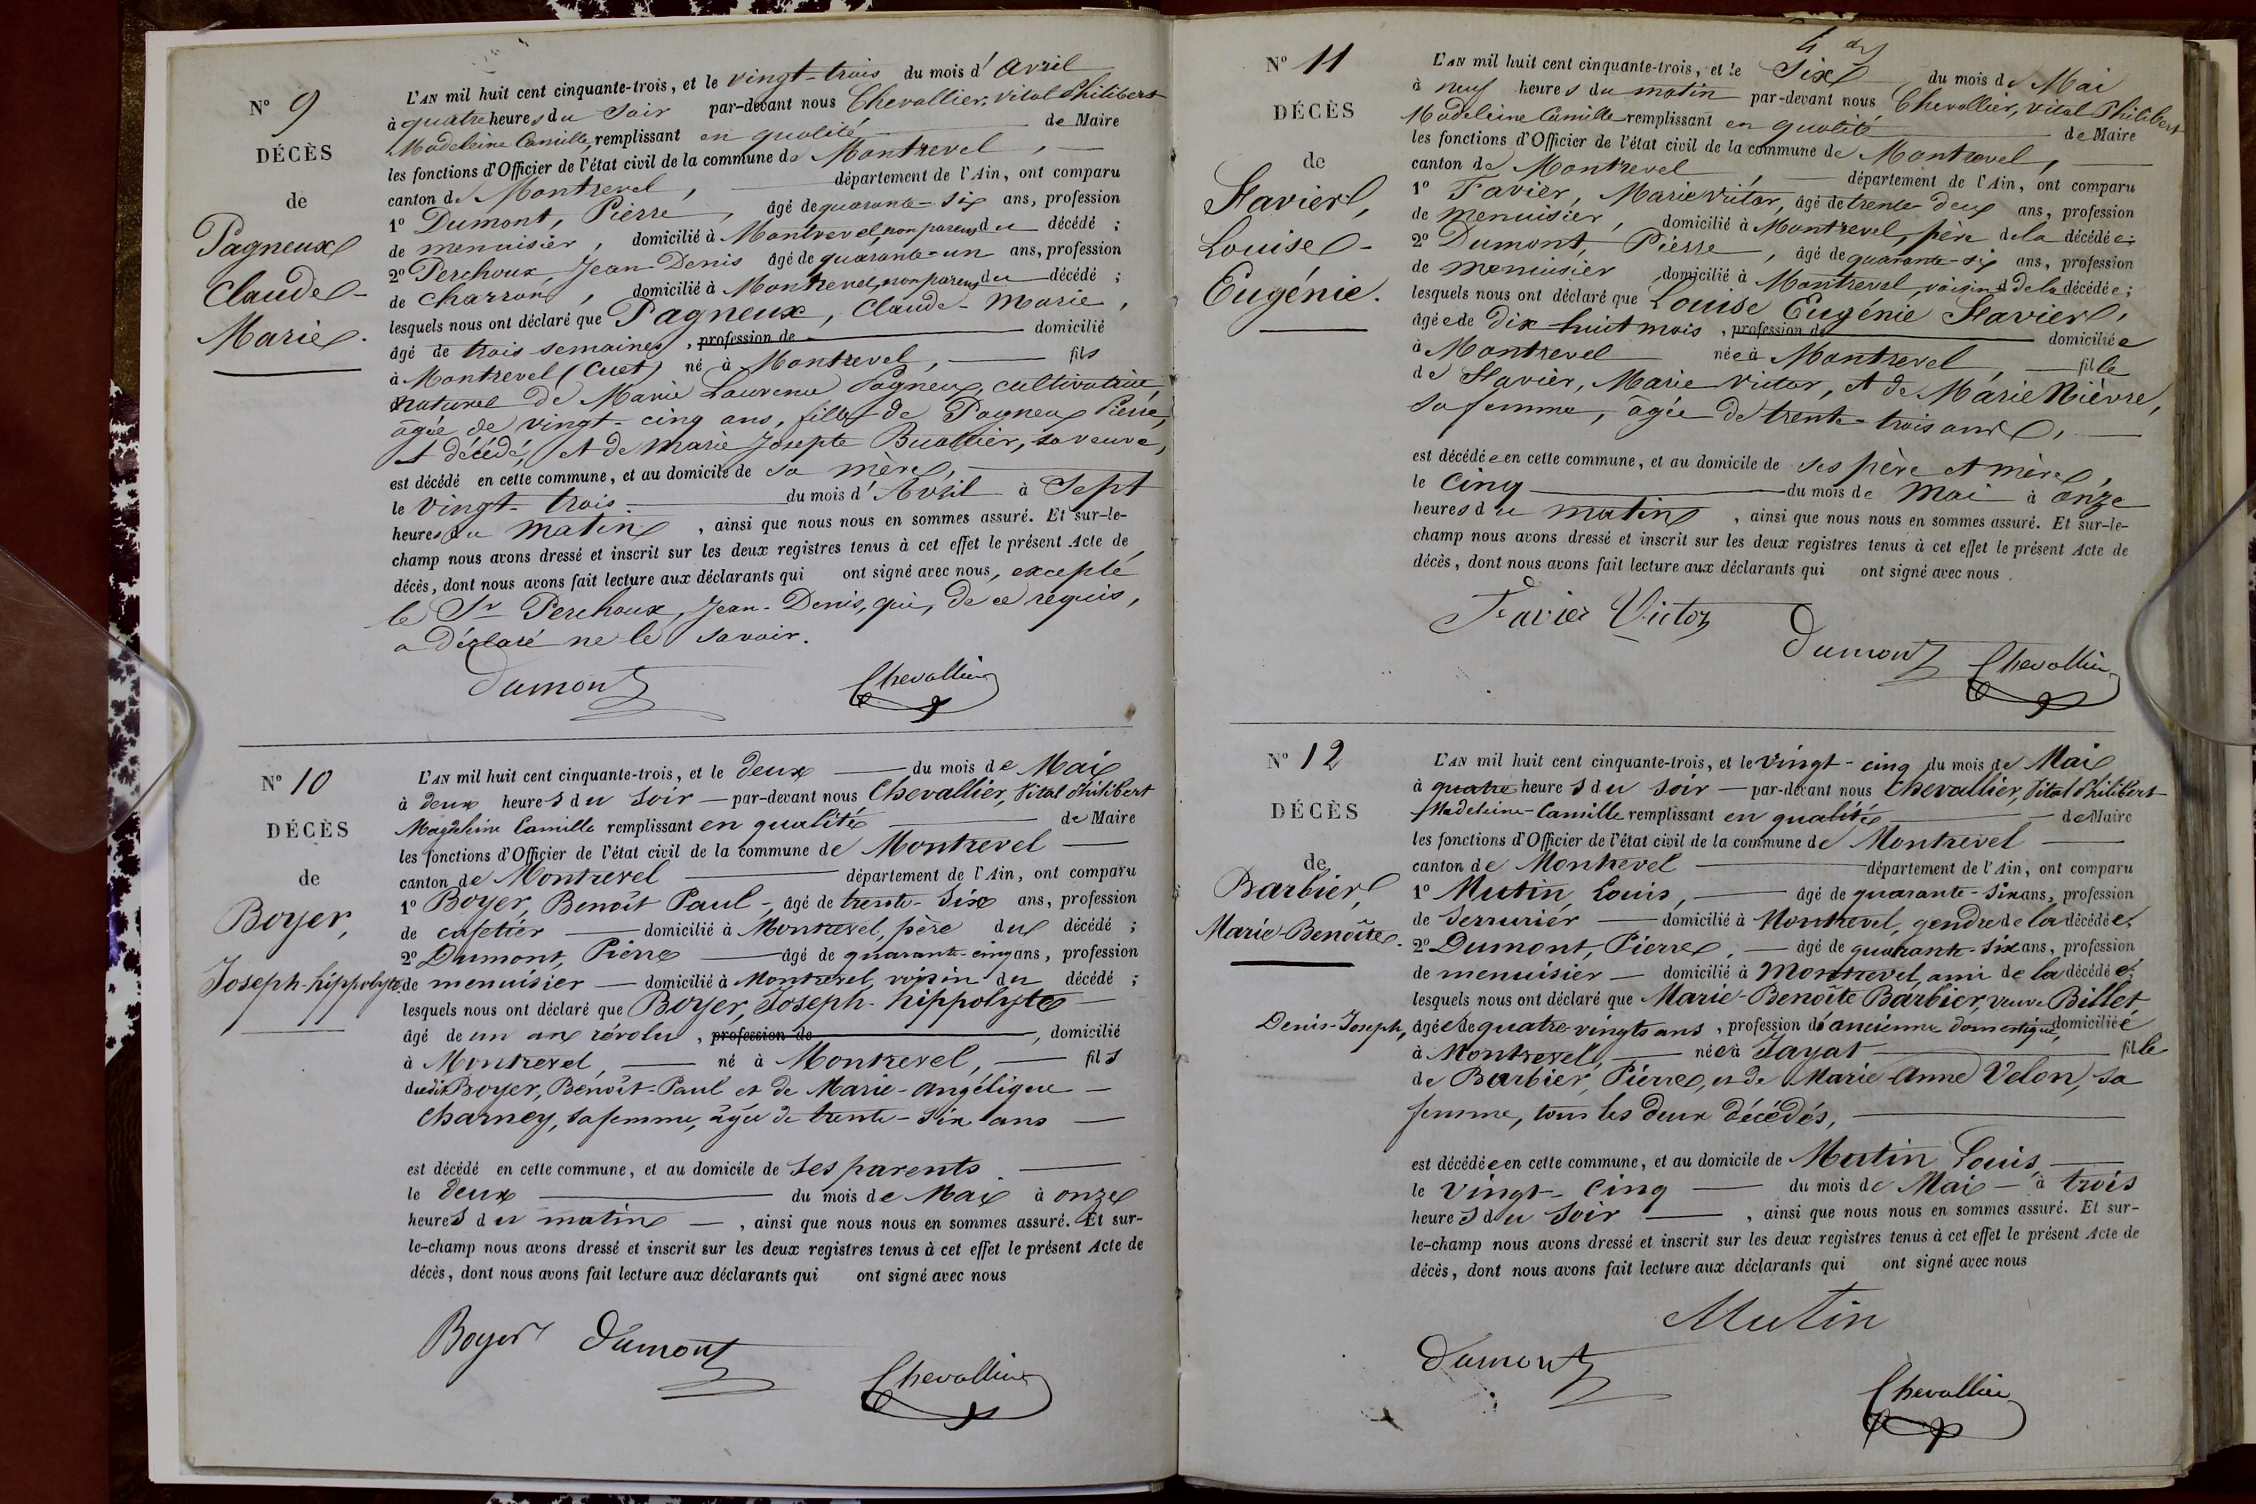 N° 9
DÉCÈS
de
Pagneux
Claude-
Marie.
L'AN mil huit cent cinquante-trois, et le vingt-trois du mois d'avril
à quatre heures du soir par-devant nous Chevallier, Vital Philibert
Madeleine Camille, remplissant en qualité de Maire
les fonctions d'Officier de l'état civil de la commune de Montrevel,
canton de Montrevel, département de l'Ain, ont comparu
1° Dumont, Pierre, âgé de quarante-six ans, profession
de menuisier, domicilié à Montrevel, non parent du décédé ;
2° Perchoux, Jean-Denis âgé de quarante-un ans, profession
de charron, domicilié à Montrevel, non parent du décédé ;
lesquels nous ont déclaré que Pagneux, Claude-Marie,
âgé de trois semaines, profession de domicilié
à Montrevel (Cuet) né à Montrevel, fils
naturel de Marie Laurence Pagneux, cultivatrice,
âgée de vingt-cinq ans, fille de Pagneux Pierre,
décédé, et de Marie Josepte Buathier, sa veuve,
est décédé en cette commune, et au domicile de sa mère,
le vingt-trois du mois d'Avril à sept
heures du matin, ainsi que nous nous en sommes assuré. Et sur-le-
champ nous avons dressé et inscrit sur les deux registres tenus à cet effet le présent Acte de
décès, dont nous avons fait lecture aux déclarants qui ont signé avec nous, excepté
le Sr Perchoux, Jean-Denis, qui, de ce requis,
a déclaré ne le savoir.
Dumont Chevallier
N° 10
DÉCÈS
de
Boyer,
Joseph-hippolyte
L'AN mil huit cent cinquante-trois, et le deux du mois de Mai
à deux heures du soir par-devant nous Chevallier, Vital Philibert
Magdeleine Camille remplissant en qualité de Maire
les fonctions d'Officier de l'état civil de la commune de Montrevel
canton de Montrevel département de l'Ain, ont comparu
1° Boyer, Benoît Paul, âgé de trente-six ans, profession
de cafetier domicilié à Montrevel, père du décédé ;
2° Dumont, Pierre âgé de quarante-cinq ans, profession
de menuisier domicilié à Montrevel, voisin du décédé ;
lesquels nous ont déclaré que Boyer, Joseph-hippolyte
âgé de un an révolu, profession de, domicilié
à Montrevel, né à Montrevel, fils
dudit Boyer, Benoît-Paul et de Marie-angélique
Charney, sa femme, âgée de trente-six ans
est décédé en cette commune, et au domicile de ses parents
le deux du mois de Mai à onze
heures du matin, ainsi que nous nous en sommes assuré. Et sur-
le-champ nous avons dressé et inscrit sur les deux registres tenus à cet effet le présent Acte de
décès, dont nous avons fait lecture aux déclarants qui ont signé avec nous
Boyer Dumont
Chevallier
N° 11
DÉCÈS
de
Favier,
Louise-
Eugénie.
L'AN mil huit cent cinquante-trois, et le Six du mois de Mai
à neuf heures du matin par-devant nous Chevallier, Vital Philibert
Madeleine Camille remplissant en qualité de Maire
les fonctions d'Officier de l'état civil de la commune de Montrevel,
canton de Montrevel, département de l'Ain, ont comparu
1° Favier, Marie Victor, âgé de trente-deux ans, profession
de menuisier, domicilié à Montrevel, père de la décédée ;
2° Dumont, Pierre, âgé de quarante-six ans, profession
de menuisier domicilié à Montrevel, voisin de la décédée ;
lesquels nous ont déclaré que Louise Eugénie Favier,
âgée de dix-huit mois, profession de domiciliée
à Montrevel née à Montrevel, fille
de Favier, Marie Victor, et de Marie Nièvre,
sa femme, âgée de trente-trois ans,
est décédée en cette commune, et au domicile de ses père et mère,
le cinq du mois de mai à onze
heures du matin, ainsi que nous nous en sommes assuré. Et sur-le-
champ nous avons dressé et inscrit sur les deux registres tenus à cet effet le présent Acte de
décès, dont nous avons fait lecture aux déclarants qui ont signé avec nous.
Favier Victor
Dumont Chevallier
N° 12
DÉCÈS
de
Barbier,
Marie-Benoîte.
L'AN mil huit cent cinquante-trois, et le vingt-cinq du mois de Mai
à quatre heures du soir par-devant nous Chevallier, Vital Philibert
Madeleine-Camille remplissant en qualité de Maire
les fonctions d'Officier de l'état civil de la commune de Montrevel
canton de Montrevel département de l'Ain, ont comparu
1° Mutin, Louis, âgé de quarante-six ans, profession
de serrurier domicilié à Montrevel, gendre de la décédée ;
2° Dumont, Pierre, âgé de quarante-six ans, profession
de menuisier domicilié à Montrevel, ami de la décédée ;
lesquels nous ont déclaré que Marie-Benoîte Barbier, veuve Billet
Denis-Joseph, âgée de quatre vingts ans, profession d'ancienne domestique, domiciliée
à Montrevel, née à Jayat fille
de Barbier, Pierre, et de Marie-Anne Velon, sa
femme, tous les deux décédés,
est décédée en cette commune, et au domicile de Mutin Louis,
le vingt-cinq du mois de Mai à trois
heures du soir, ainsi que nous nous en sommes assuré. Et sur-
le-champ nous avons dressé et inscrit sur les deux registres tenus à cet effet le présent Acte de
décès, dont nous avons fait lecture aux déclarants qui ont signé avec nous
Mutin
Dumont
Chevallier